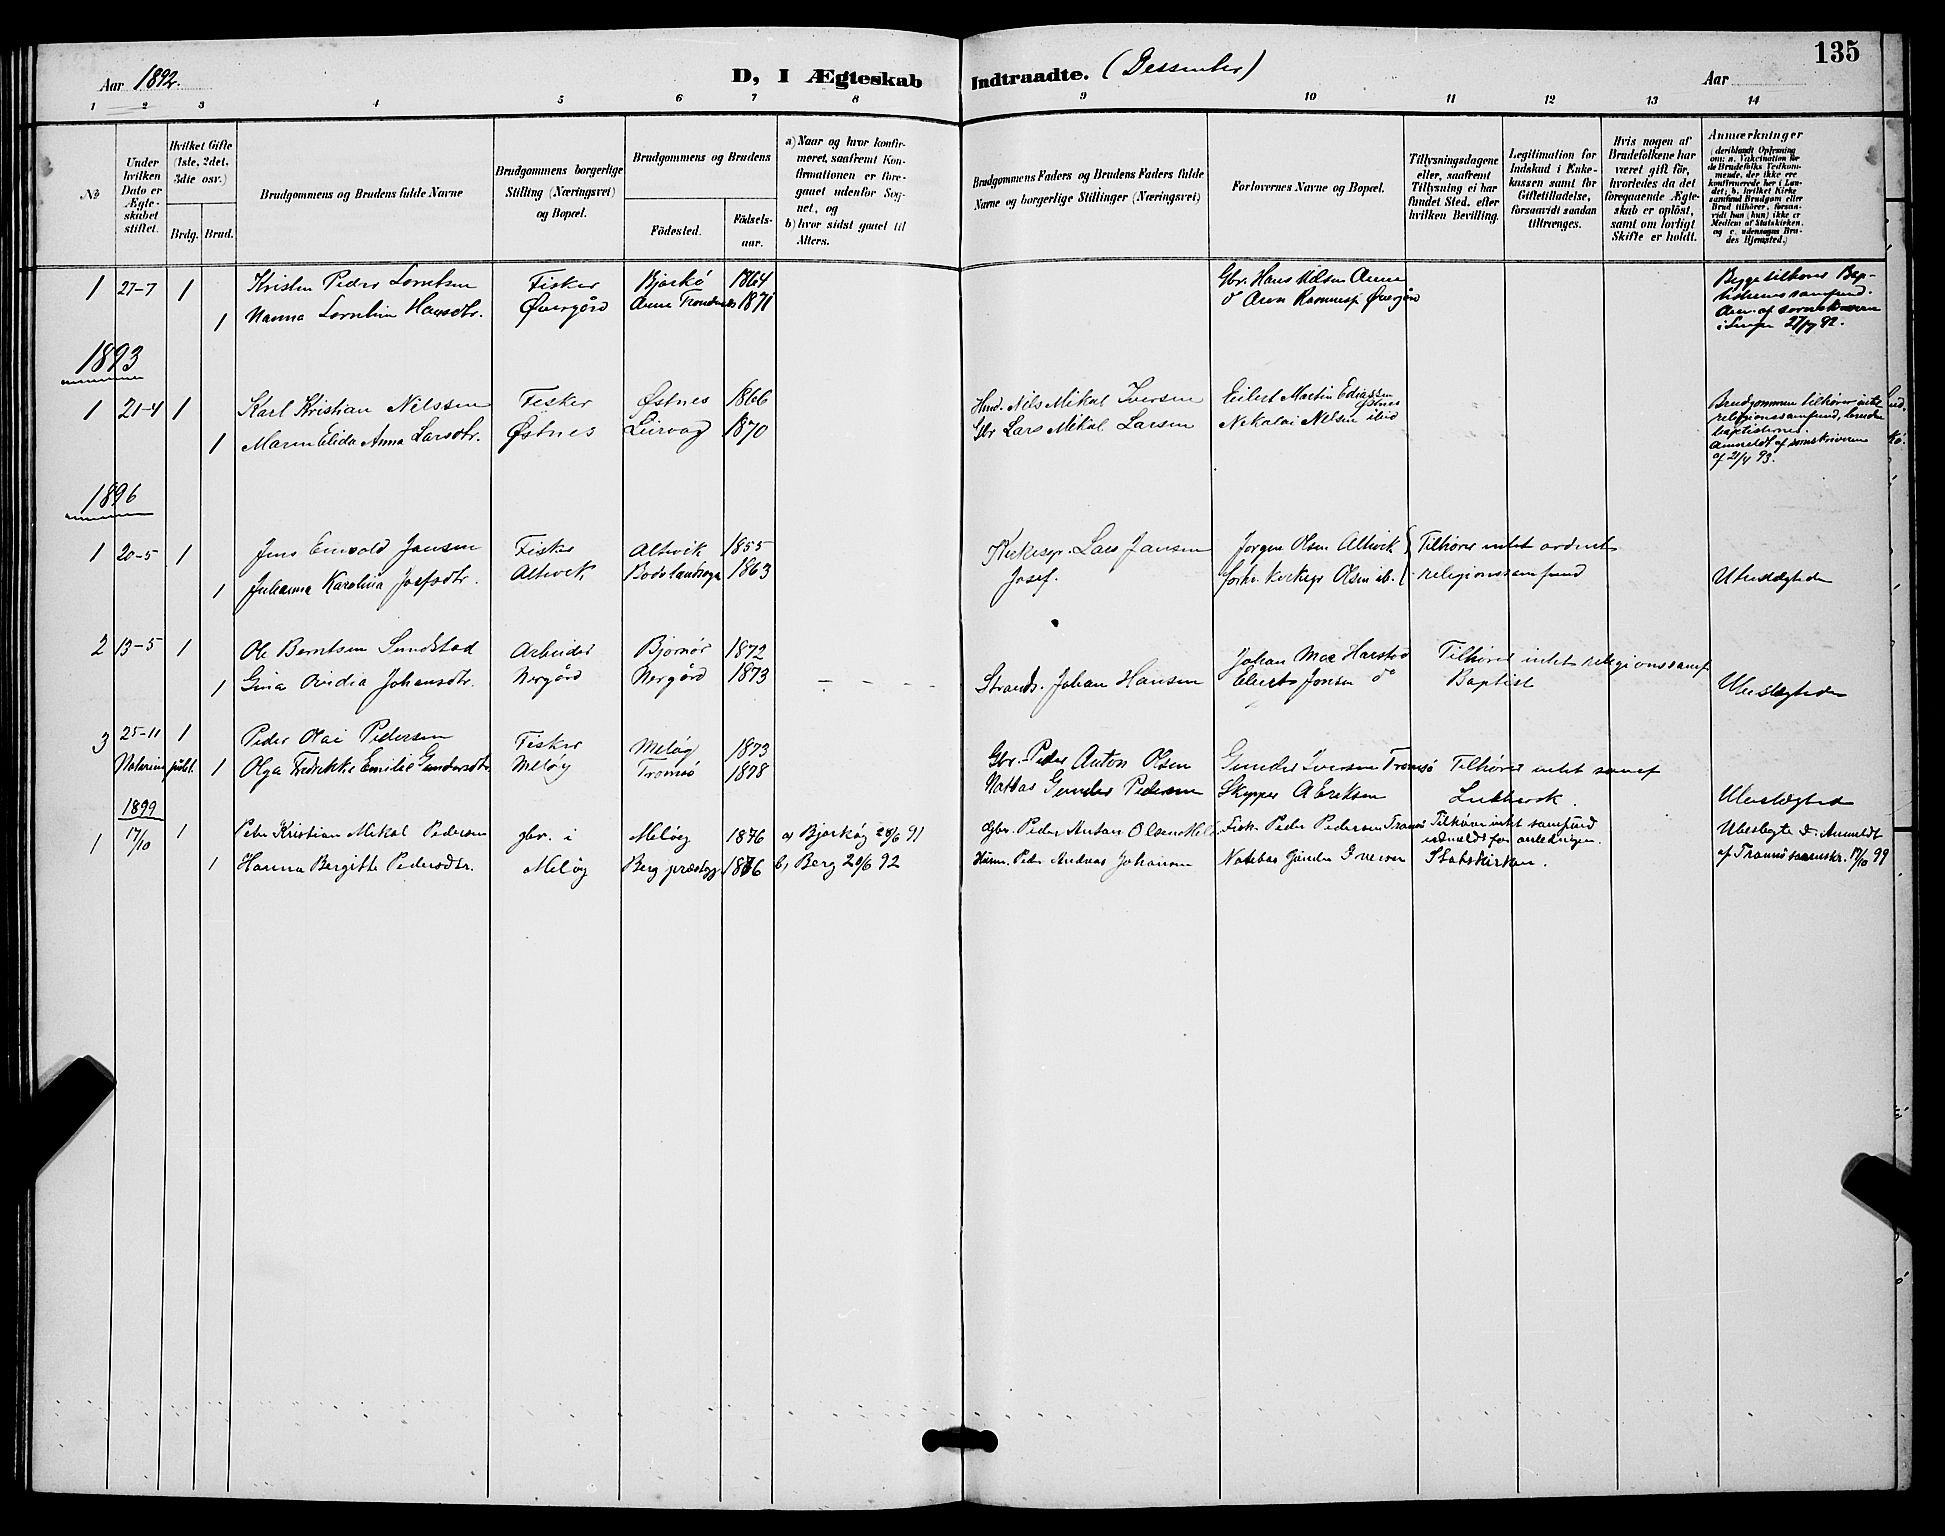 135
Aar 1892.
D, I Ægteskab Indtraadte. (Dessenter)
Aar
1 2 3 4 5 6 7 8 9 10 11 12 13 14
No
Under hvilken Dato er Ægteskabet stiftet.
Hvilket Gifte (1ste, 2det, 3die osv.)
Brdg. Brud.
Brudgommens og Brudens fulde Navne
Brudgommens borgerlige Stilling (Næringsvei) og Bopæl.
Brudgommens og Brudens
Fødested. Fødselsaar.
a) Naar og hvor konfirmeret, saafremt Konfirmationen er foregaaet udenfor Sognet, og
b) hvor sidst gaaet til Alters.
Brudgommens Faders og Brudens Faders fulde Navne og borgerlige Stillinger (Næringsvei)
Forlovernes Navne og Bopæl.
Tillysningsdagene eller, saafremt Tillysning ei har fundet Sted, efter hvilken Bevilling.
Legitimation for Indskud i Enkekassen samt for Giftetilladelse, forsaavidt saadan tiltrænges.
Hvis nogen af Brudefolkene har været gift før, hvorledes da det foregaaende Ægteskab er opløst, samt om lovligt Skifte er holdt.
Anmærkninger (deriblandt Oplysning om: a. Vakcination for de Brudefolks Vedkommende, der ikke ere konfirmerede her i Landet; b. hvilket Kirkesamfund Brudgom eller Brud tilhører, forsaavidt han (hun) ikke er Medlem af Statskirken, og c. udensogns Brudes Hjemsted.)
1 27-7 1 Kristen Peder Lorntsen Fisker Bjarkö 1864 Gbr. Hans Nilsen Aune Begge tilhører Bap-
1 Nanna Lorntin Hansdtr. Øvergörd Aune 1871 do Aron Øvergörd tistenes samfund.
27/7 92.
1893
1 21-4 1 Karl Kristian Nilssen Fisker Østnes 1866 Nils Mikal Iversen Eilert Martin Ediassen Østnes Brudgommen tilhører intet
1 Maren Elida Anna Larsdtr. Østnes Leirvag 1870 Gbr Lars Mikal Larsen Nikolai Nilsen ibid religionssamfund, bruden
baptisternes.
Anmeldt af sornskriveren
af 21/4 93.
1896
1 20-5 1 Jens Jansen Fisker Altevik 1855 Kirkesgr. Lars Jansen Jørgen Olsen Altevik Tilhører intet ordent
1 Johanna Karolina Josefsdtr. Altevik, Bodø landsogn 1863 Josef. Olsen ib. religionssamfund Ubeslægtede
2 13-5 1 Ole Berntsen Sundstad Arbeider Bjørnør 1872 Johan Moe Harstad Tilhører intet religionssamf
1 Gina Ovidia Johansdtr. Nergörd Nergörd 1873 Strands. Johan Hansen Jonsen do Baptist Ubeslægtede
3 25-11 1 Peder Olai Pedersen Fisker Meløy 1873 Gbr. Peder Anton Olsen Gunder Iversen Tromsø Tilhører intet samf
Notarius publ. 1 Olga Fredrikke Emilie Gundersdtr Meløy Tromsø 1878 Natbas Gunder Pedersen Skipper A Eriksen Luthersk. Ubeslægtede
1899
1 17/10 1 Peter Kristian Mikal Pedersen gbr. i Meløy 1876 a) Bjarkøy 28/6 91 Gbr. Peder Anton Olsen Fisk. Peder Pedersen Tromsø Tilhører intet samfund Ubeslegtede. Anmeldt
udmeldt for anledningen.
1 Hanna Bergitte Pedersdtr. Meløy Berg præstegj. 1876 b) Berg 20/6 92 Husm. Peder Andreas Johansen Natbas Gunder Iversen Statskirken. af Tromsø sorenskr. 17/10 99